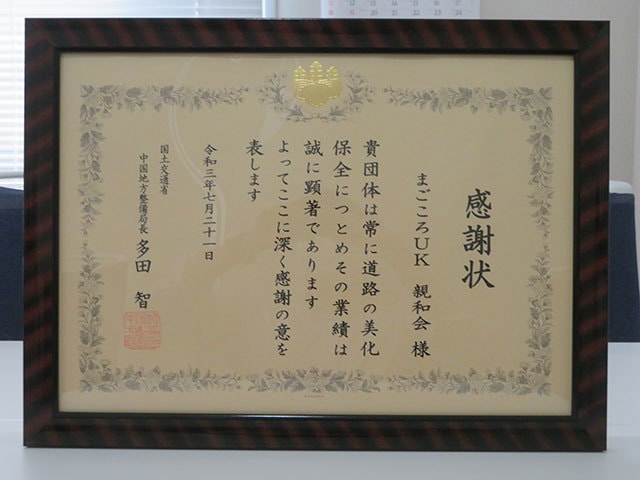 感謝状
まごころUK 親和会 様
貴団体は常に道路の美化
保全につとめその業績は
誠に顕著であります
よってここに深く感謝の意を
表します
令和三年七月二十一日
国土交通省
中国地方整備局長 多田 智